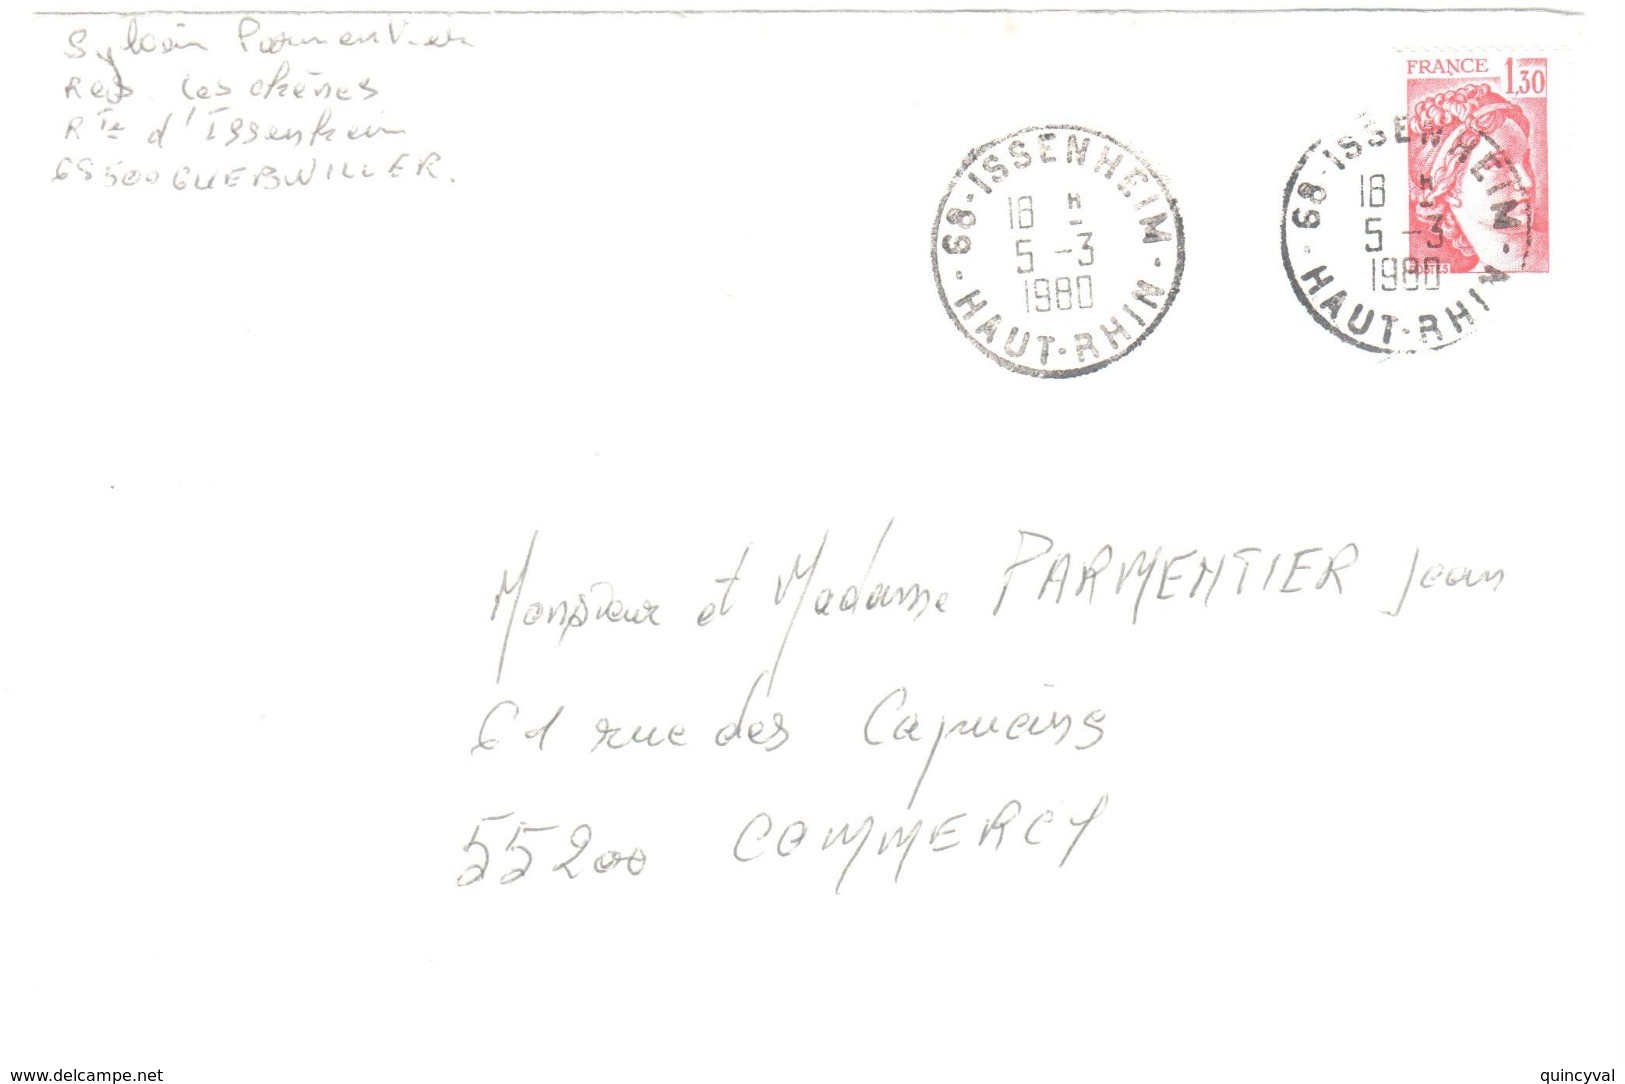 Sylvain Parmentier
Res Les chênes
Rte d'Issenheim
68500 GUEBWILLER.
FRANCE 1,30
POSTES
68-ISSENHEIM
18 H
5 -3
1980
HAUT-RHIN
68-ISSENHEIM
18 H
5 -3
1980
HAUT-RHIN
Monsieur et Madame PARMENTIER Jean
61 rue des Capucins
55200 COMMERCY
www.delcampe.net
quincyval